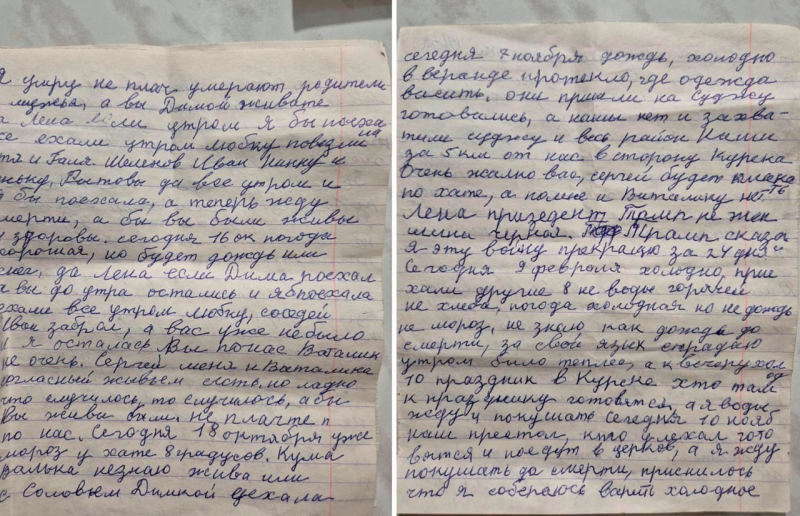 Я умру не плач умерают родители
а вы Димой живите
Лена если утром я бы поеха
все ехали утром любку повезли
и Галя Шеленов Иван Нинку и
да все утром и
я бы поехала, а теперь жду
смерти, а бы вы были живы
и здоровы. сегодня 16 ок погода
хорошая, но будет дождь или
снег, да Лена если Дима поехал
а вы до утра остались и я б поехала
ехали все утром любку, соседей
Иван забрал, а вас уже небыло
и я осталась Вы по нас Виталик
не очень. Сергей меня и Виталика
живьем съесть, но ладно
что случилось, то случилось, абы
Вы живы были. не плачте
по нас. Сегодня 18 октября уже
мороз у хате 8 градусов. Кума
незнаю жива или
с Соловьем Димкой уехала
сегодня 7 ноября дождь, холодно
в веранде протекло, где одежда
висить. они пришли на Суджу
готовились, а наши нет и захва-
тили суджу и весь район Наши
за 5 км от нас в сторону Курска
Очень жалко вас, сергей будет плака
ть
по хате, а по мне и Виталику нет
Лена призедент Трамп не жен
щина черная. Трамп сказа
л
я эту войну прекращу за 24 дня
Сегодня 9 февроля холодно, прие
хали другие 8 не воды горячей
не хлеба, погода холодная но не дождь
не мороз, не знаю как дожить до
смерти, за свой язык страдаю
утром было теплее, а к вечеру хол
од
10 праздник в Курска хто там
к празднику готовятся, а я воды
жду и покушать Сегодня 10 нояб
наш престол, кто уехал гото
вытся и поедут в церков, а я жду
покушать до смерти, приснилось
что я собераюсь варить холодное